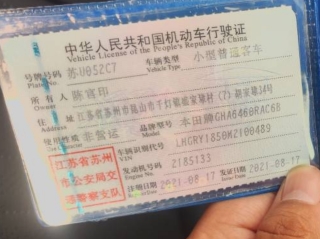 中华人民共和国机动车行驶证
Vehicle License of the People's Republic of China
号牌号码 苏U052C7 车辆类型 小型普通客车
Plate No. Vehicle Type
所有人
Owner
住址 江苏省苏州市昆山市千灯镇
Address
使用性质 非营运 品牌型号 本田牌GHA6460RAC6B
车辆识别代号
VIN
发动机号码 2185133
Engine No.
注册日期 2021-08-17 发证日期 2021-08-17
江苏省苏州
市公安局交
通警察支队